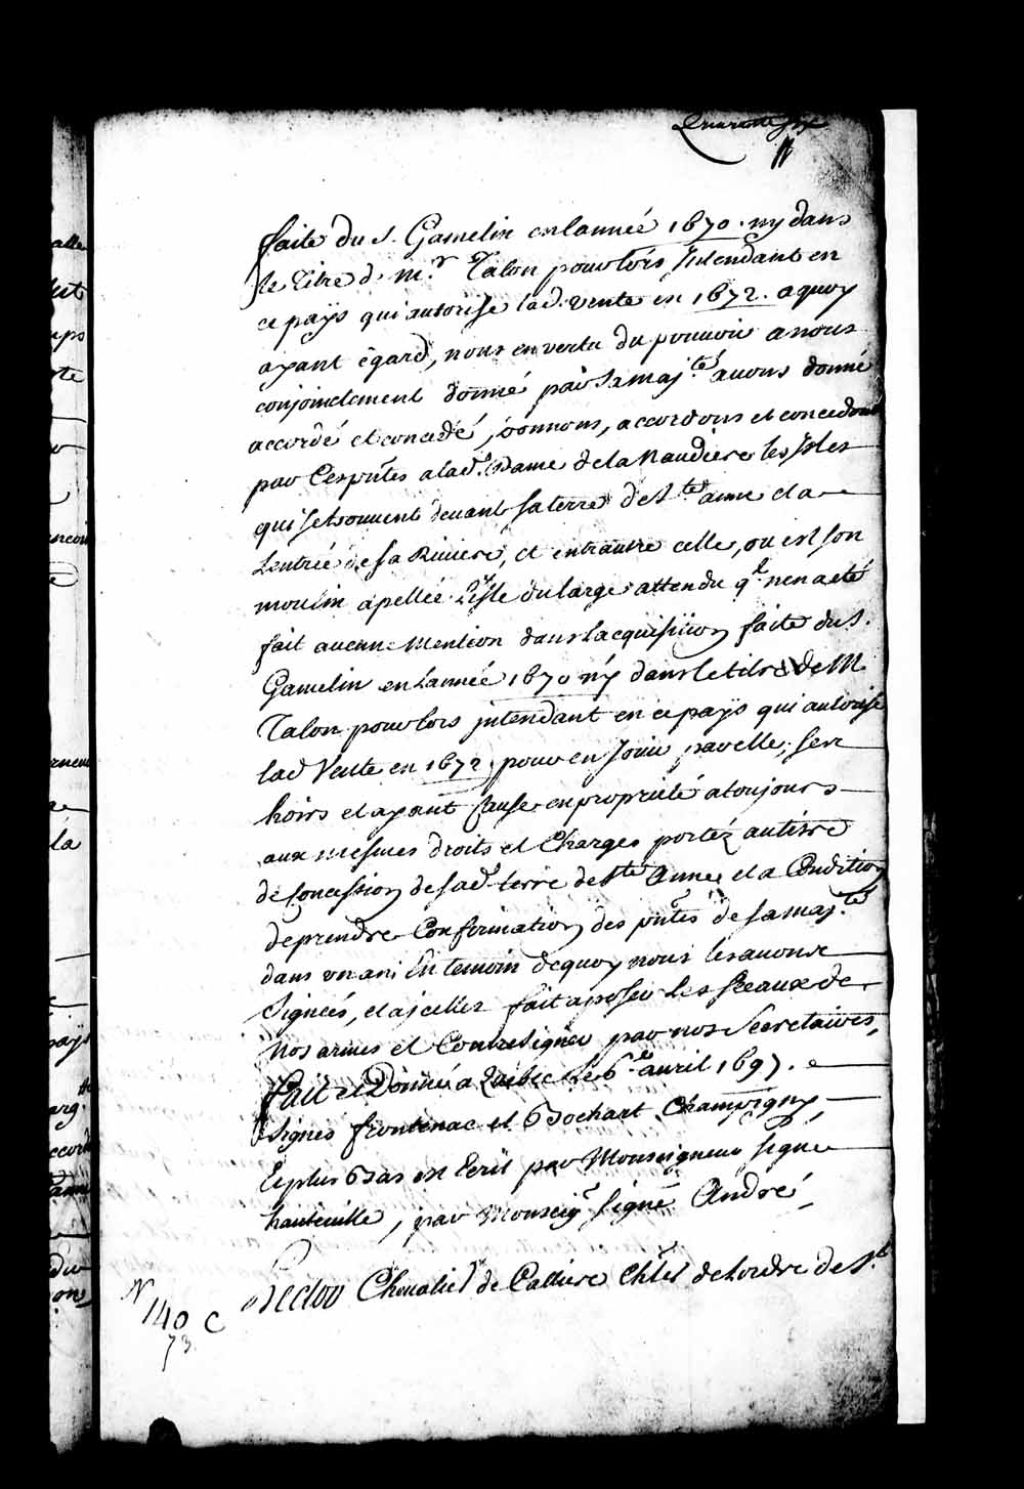 Quarante six
faite du S. Gamelin en lannée 1670. ny dans
le titre de Mr. Talon pour lors Intendant en
ce païs qui autorise lad. vente en 1672. a quoy
ayant égard, nous en vertu du pouvoir a nous
conjoinctement donné par sa majté. avons donné
accordé et concedé, donnons, accordons et concedons
par Ces pntes a lad. Dame de la Naudiere les Isles
qui se trouvent devant sa terre de Ste anne et a
Lentrée de sa Riviere, et entrautre celle, ou est son
moulin apellée L'isle du large attendu ql. nen a eté
fait aucune mention dans lacquisition faite du S.
Gamelin en Lannée 1670 ny dans le titre de M
Talon pour lors jntendant en ce païs qui autorise
lad Vente en 1672, pour en Jouir par elle, ses
hoirs et ayant Cause en propriété a toujours
aux mesmes droits et Charges portéz au titre
de Concession de sad. terre de Ste Anne et a Condition
de prendre Confirmation des pntes de sa majté.
dans un an En temoin de quoy nous les avons
Signées, et a jcelles fait aposer les sceaux de
Nos armes et Contresigner par nos Secretaires,
Fait et Donné a Quebec Le 6e. avril 1697.
Signés frontenac et Bochart Champigny,
Et plus Bas est Ecrit par Monseigneur signé
hauteuille, par Monseigr. signé André,
Hector Chevalier de Calliere Chler de Lordre de St.
N 140 C
73.